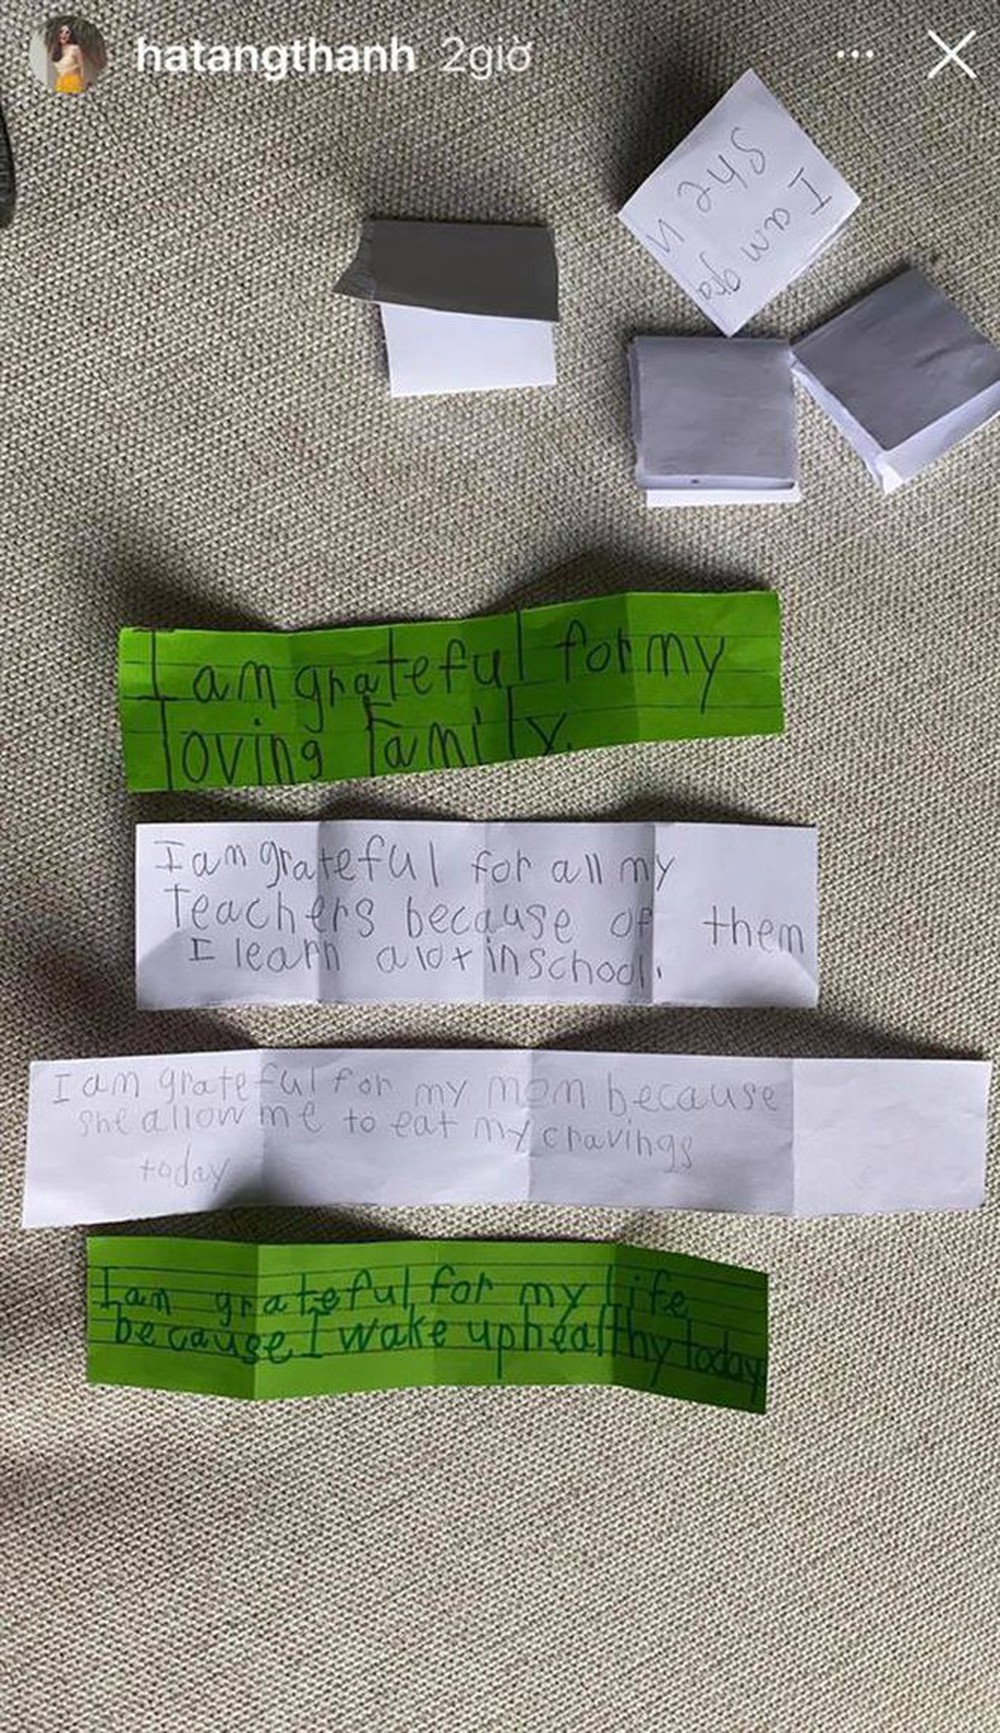 hatangthanh 2giờ
I am gra
She
I am grateful for my
loving family.
I am grateful for all my
Teachers because of them
I learn a lot in school.
I am grateful for my mom because
she allow me to eat my cravings
today
I am grateful for my life
because I wake up healthy today